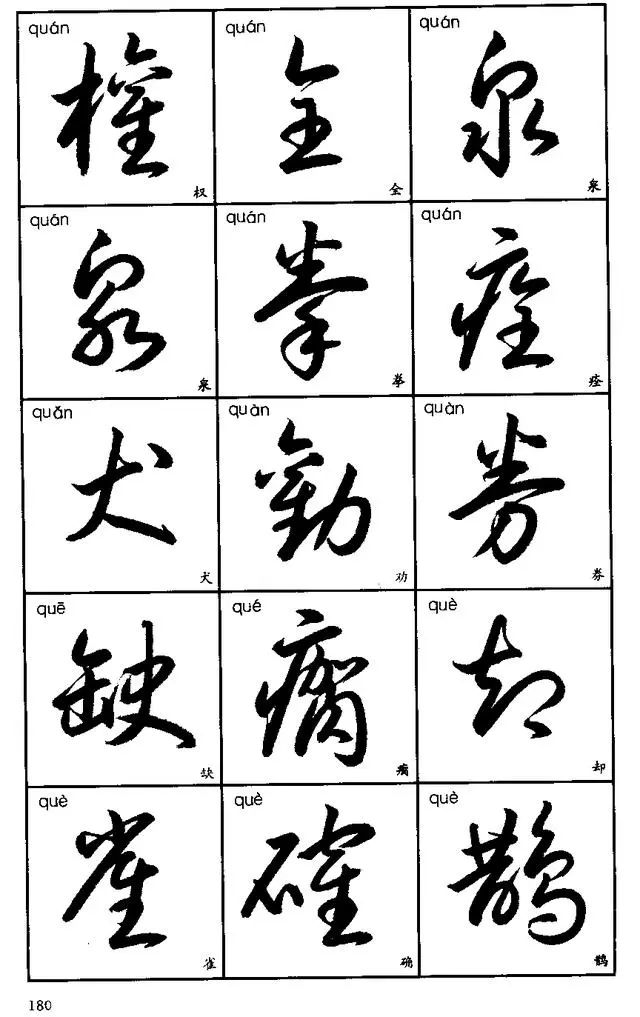 quán quán quán
權 全 泉
权 全 泉
quán quán quán
泉 拳 痊
泉 拳 痊
quǎn quàn quàn
犬 勸 券
犬 劝 券
quē qué què
缺 瘸 却
缺 瘸 却
què què què
雀 確 鹊
雀 确 鹊
180